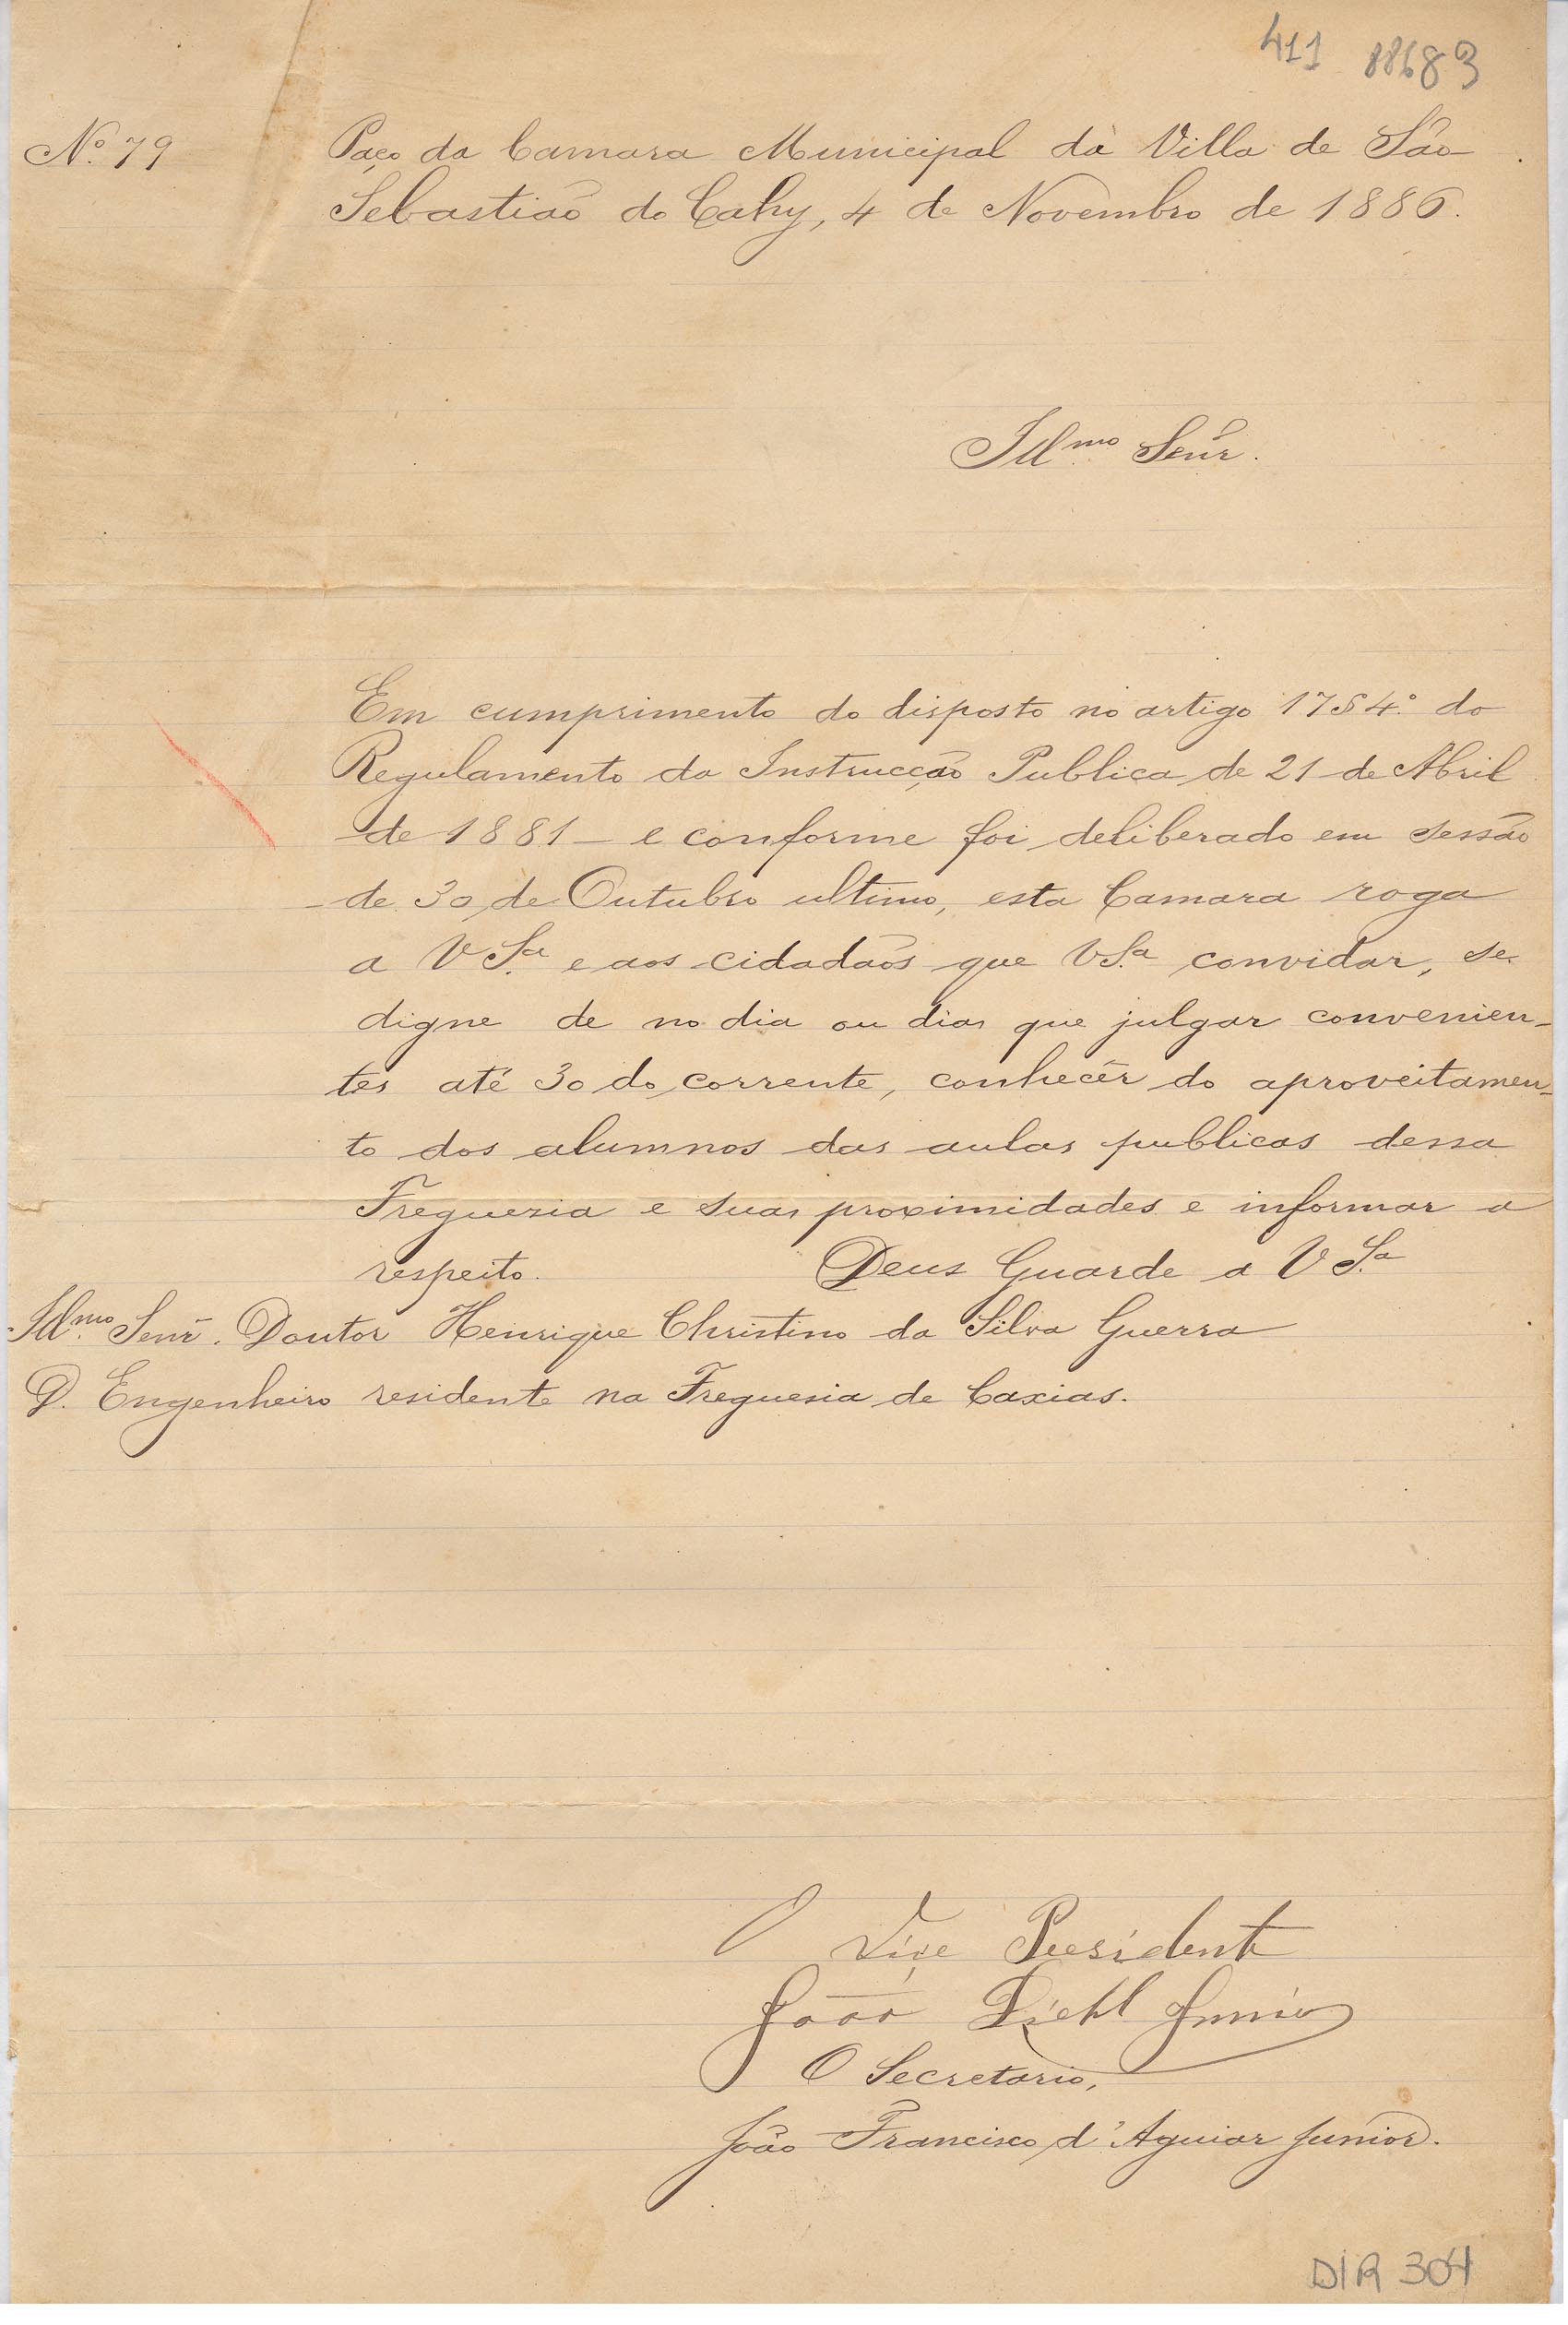 411 88683
Nº 79 Paço da Camara Municipal da Villa de São
Sebastião do Cahy, 4 de Novembro de 1886.
Illmo Senr.
Em cumprimento do disposto no artigo 17 § 4º do
Regulamento da Instrucção Publica de 21 de Abril
de 1881 – e conforme foi deliberado em sessão
de 30 de Outubro ultimo, esta Camara roga
a V Sª e aos cidadãos que V Sª convidar, se
digne de no dia ou dias que julgar convenien-
tes até 30 do corrente, conhecêr do aproveitamen-
to dos alumnos das aulas publicas dessa
Freguesia e suas proximidades e informar a
respeito. Deus Guarde a V Sª
Illmo Senr. Doutor Henrique Christino da Silva Guerra
D. Engenheiro residente na Freguesia de Caxias.
O Vice Presidente
João Diehl Junior
O Secretario,
João Francisco d'Aguiar Junior.
DIR 304